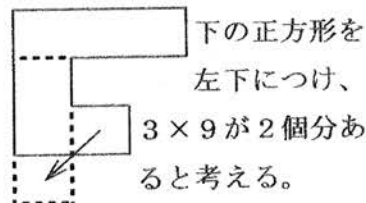 下の正方形を
左下につけ、
３×９が２個分あ
ると考える。